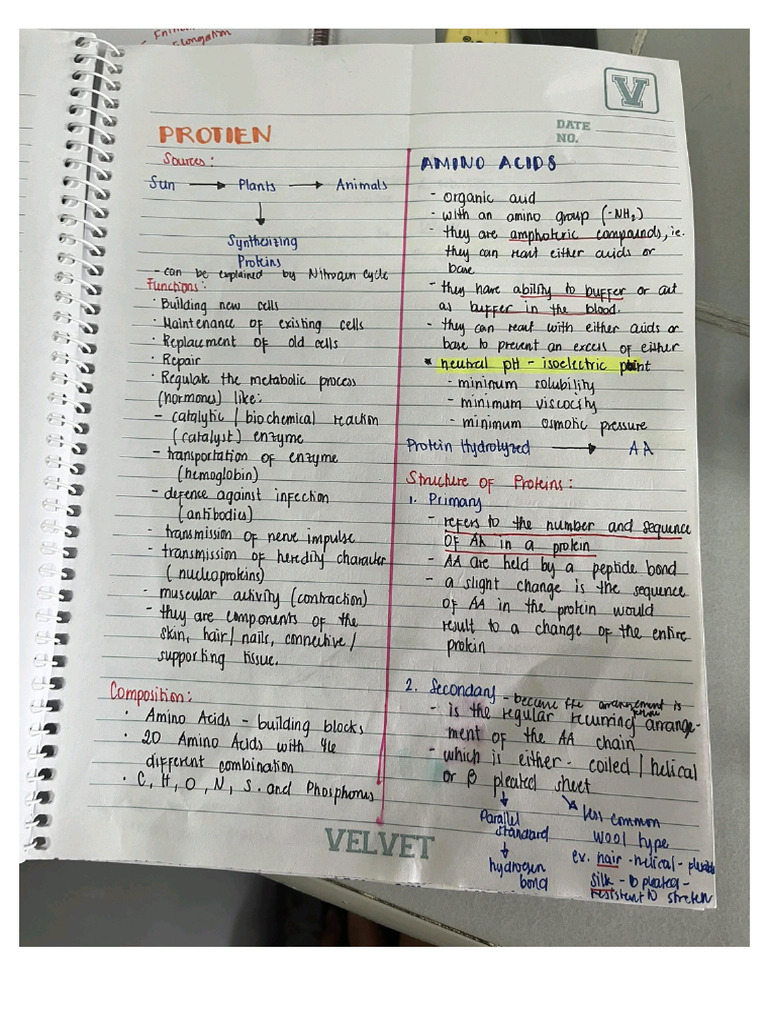 Elongation
V
DATE
NO.
PROTIEN
Sources:
Sun → Plants → Animals
↓
Synthesizing
Proteins
- can be explained by Nitrogen cycle
Functions:
· Building new cells
· Maintenance of existing cells
· Replacment of old cells
· Repair
· Regulate the metabolic process
(hormones) like:
- catalytic / biochemical reaction
(catalyst) enzyme
- transportation of enzyme
(hemoglobin)
- defense against infection
(antibodies)
- transmission of nerve impulse
- transmission of heredity character
(nucleoproteins)
- muscular activity (contraction)
- they are components of the
skin, hair/nails, connective/
supporting tissue.
Composition:
· Amino Acids - building blocks
· 20 Amino Acids with 46
different combination
· C, H, O, N, S. and Phosphorus
AMINO ACIDS
- organic acid
- with an amino group (-NH₂)
- they are amphoteric compounds, ie.
they can react either acids or
base
- they have ability to buffer or act
as buffer in the blood.
- they can react with either acids or
base to prevent an excess of either
* neutral pH - isoelectric point
- minimum solubility
- minimum viscocity
- minimum osmotic pressure
Protein Hydrolyzed → AA
Structure of Proteins:
1. Primary
- refers to the number and sequence
of AA in a protein
- AA are held by a peptide bond
- a slight change is the sequence
of AA in the protein would
result to a change of the entire
protein
2. Secondary - because the arrangement is
- is the regular recurring arrange-
ment of the AA chain
- which is either - coiled / helical
or β pleated sheet
↓
Parallel
standard
↓
hydrogen
bond
↘ less common
wool type
ex. hair - helical -
silk - pleated -
resistent to stretch
VELVET